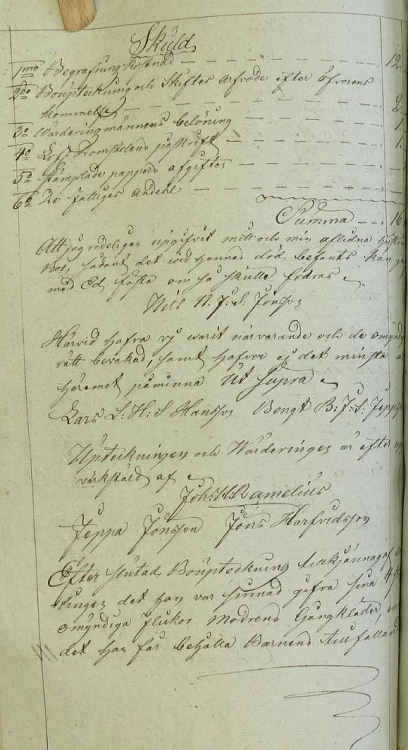 Skuld
1mo Begrafnings kostnad - - - - 12
2do Bouptekning och Skiftes arfvode efter öfverens - - 2
kommelse
3o Warderingsmännens belöning - - - - 1
4o Lofl. Domstolens påskrift - - - - 1
5o Stämplade pappers afgiften - - - -
6o De fattigas andehl - - - -
Summa - - 16
Att jag redeligen upgifvit mitt och min aflidna hustrus
Bo, sådant det vid hennes död befants kan jag
med Ed fästa om så skulle fordras
Nils N. J. S. Jönsson
Härvid hafva vi warit närvarande och de omyndigas
rätt bevakad, samt hafve ej det minsta
häremot påminna Ut Supra
Lars L. H. S Hansson Bengt B. J. S. Jeppsson
Upteckningen och Warderingen är efter
värkstäld af
Joh: H. Ramelius
Jeppa Jönsson Jöns Harfvidsson
Efter slutad Bouptekning
det han var sinnad gifva sina
omyndiga flickor Modrens Gångkläder,
det han får behålla Barnens tillfallande